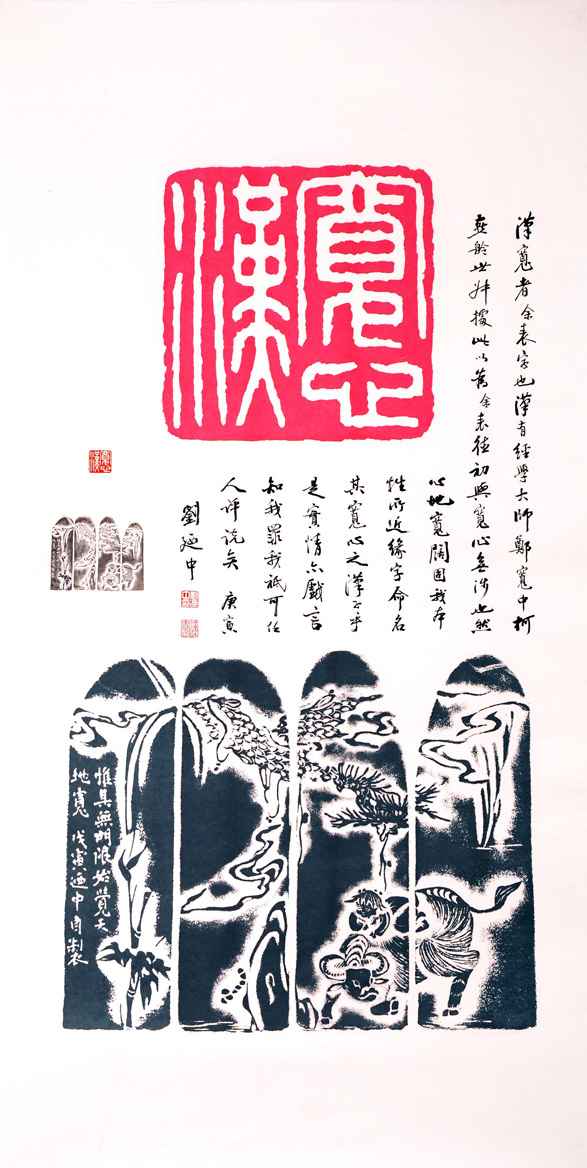 寬心
漢
漢寬者余表字也漢有經學大師鄭寬中柯
據此以為余表德初與寬心無涉也然
心地寬闊固我本
性所近緣字命名
其寬心之漢乎
是實情亦戲言
知我罪我祇可任
人評說矣 庚寅
劉廼中
惟具無門限始覺天
地寬 戊寅迺中自製